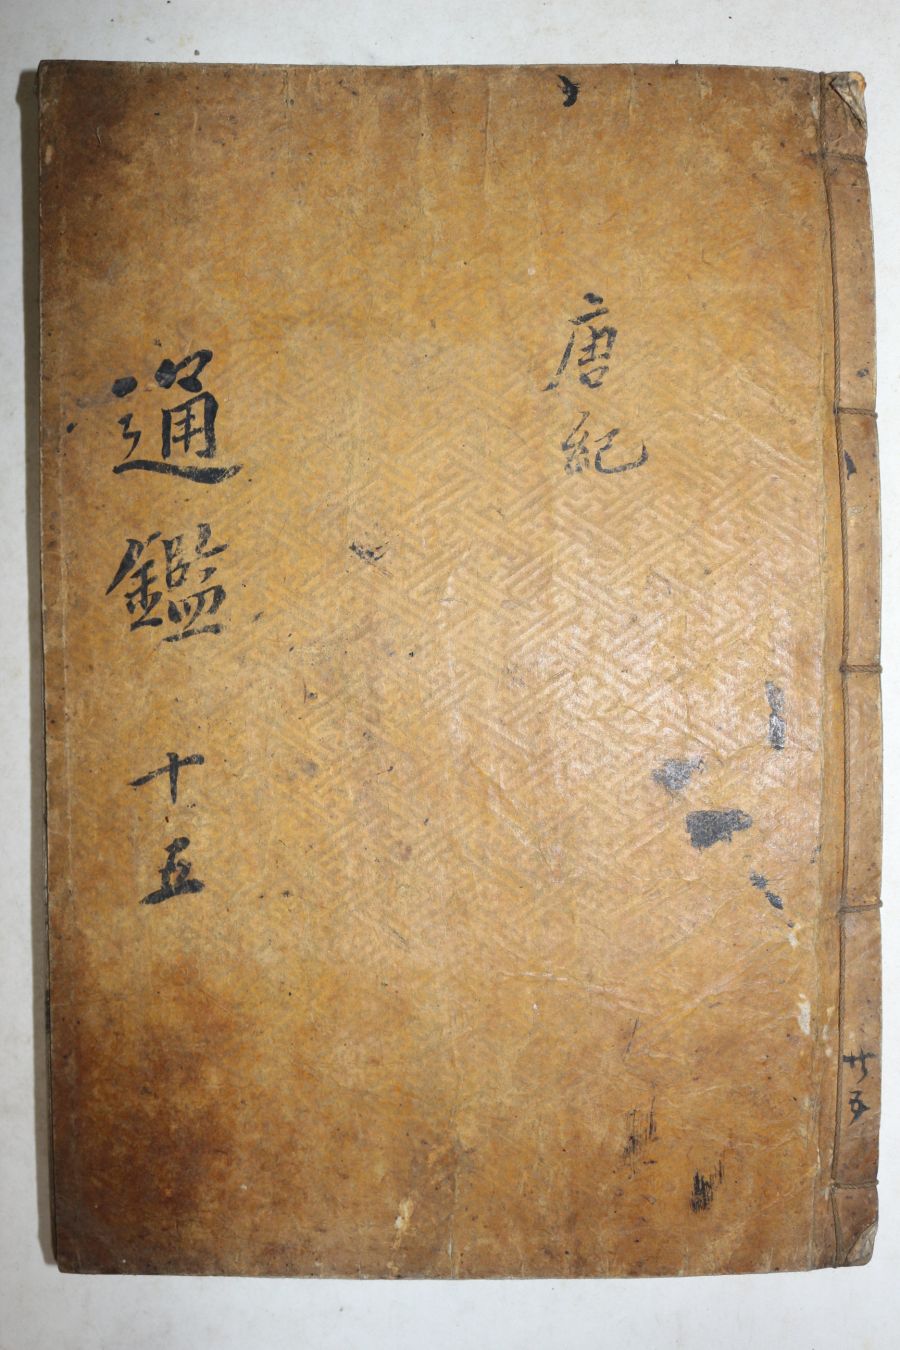 唐紀
通鑑 十五
廿五